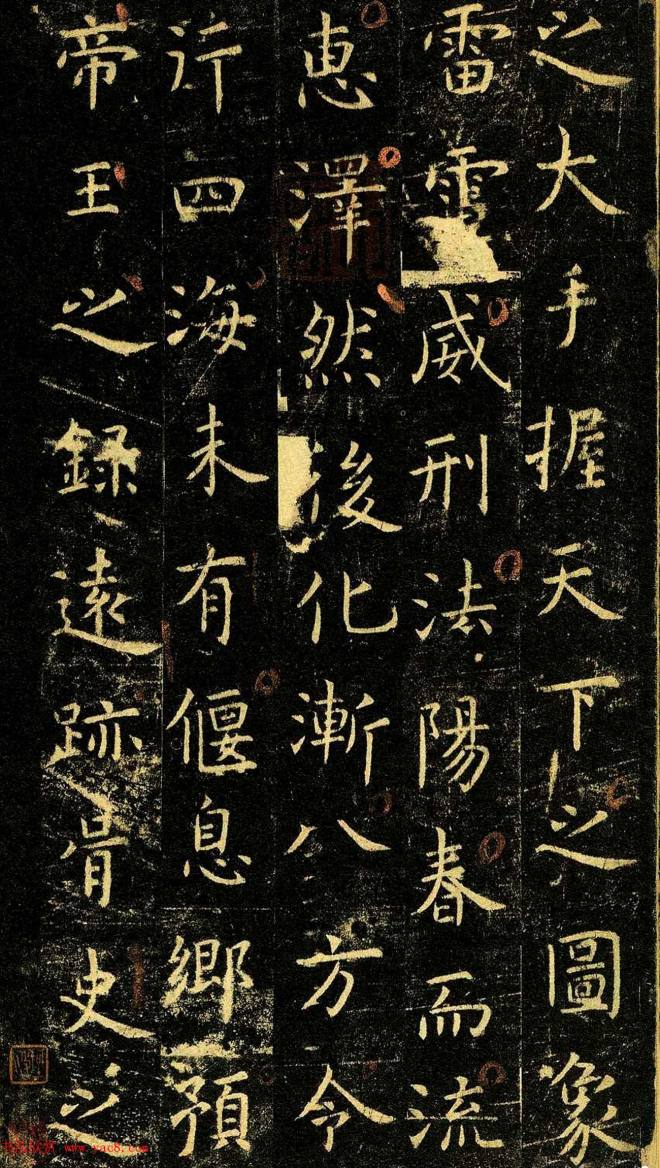 之大手握天下之圖象
雷電威刑法陽春而流
惠澤然後化漸八方令
行四海未有偃息鄉預
帝王之錄遠跡胥史之
www.yac8.com